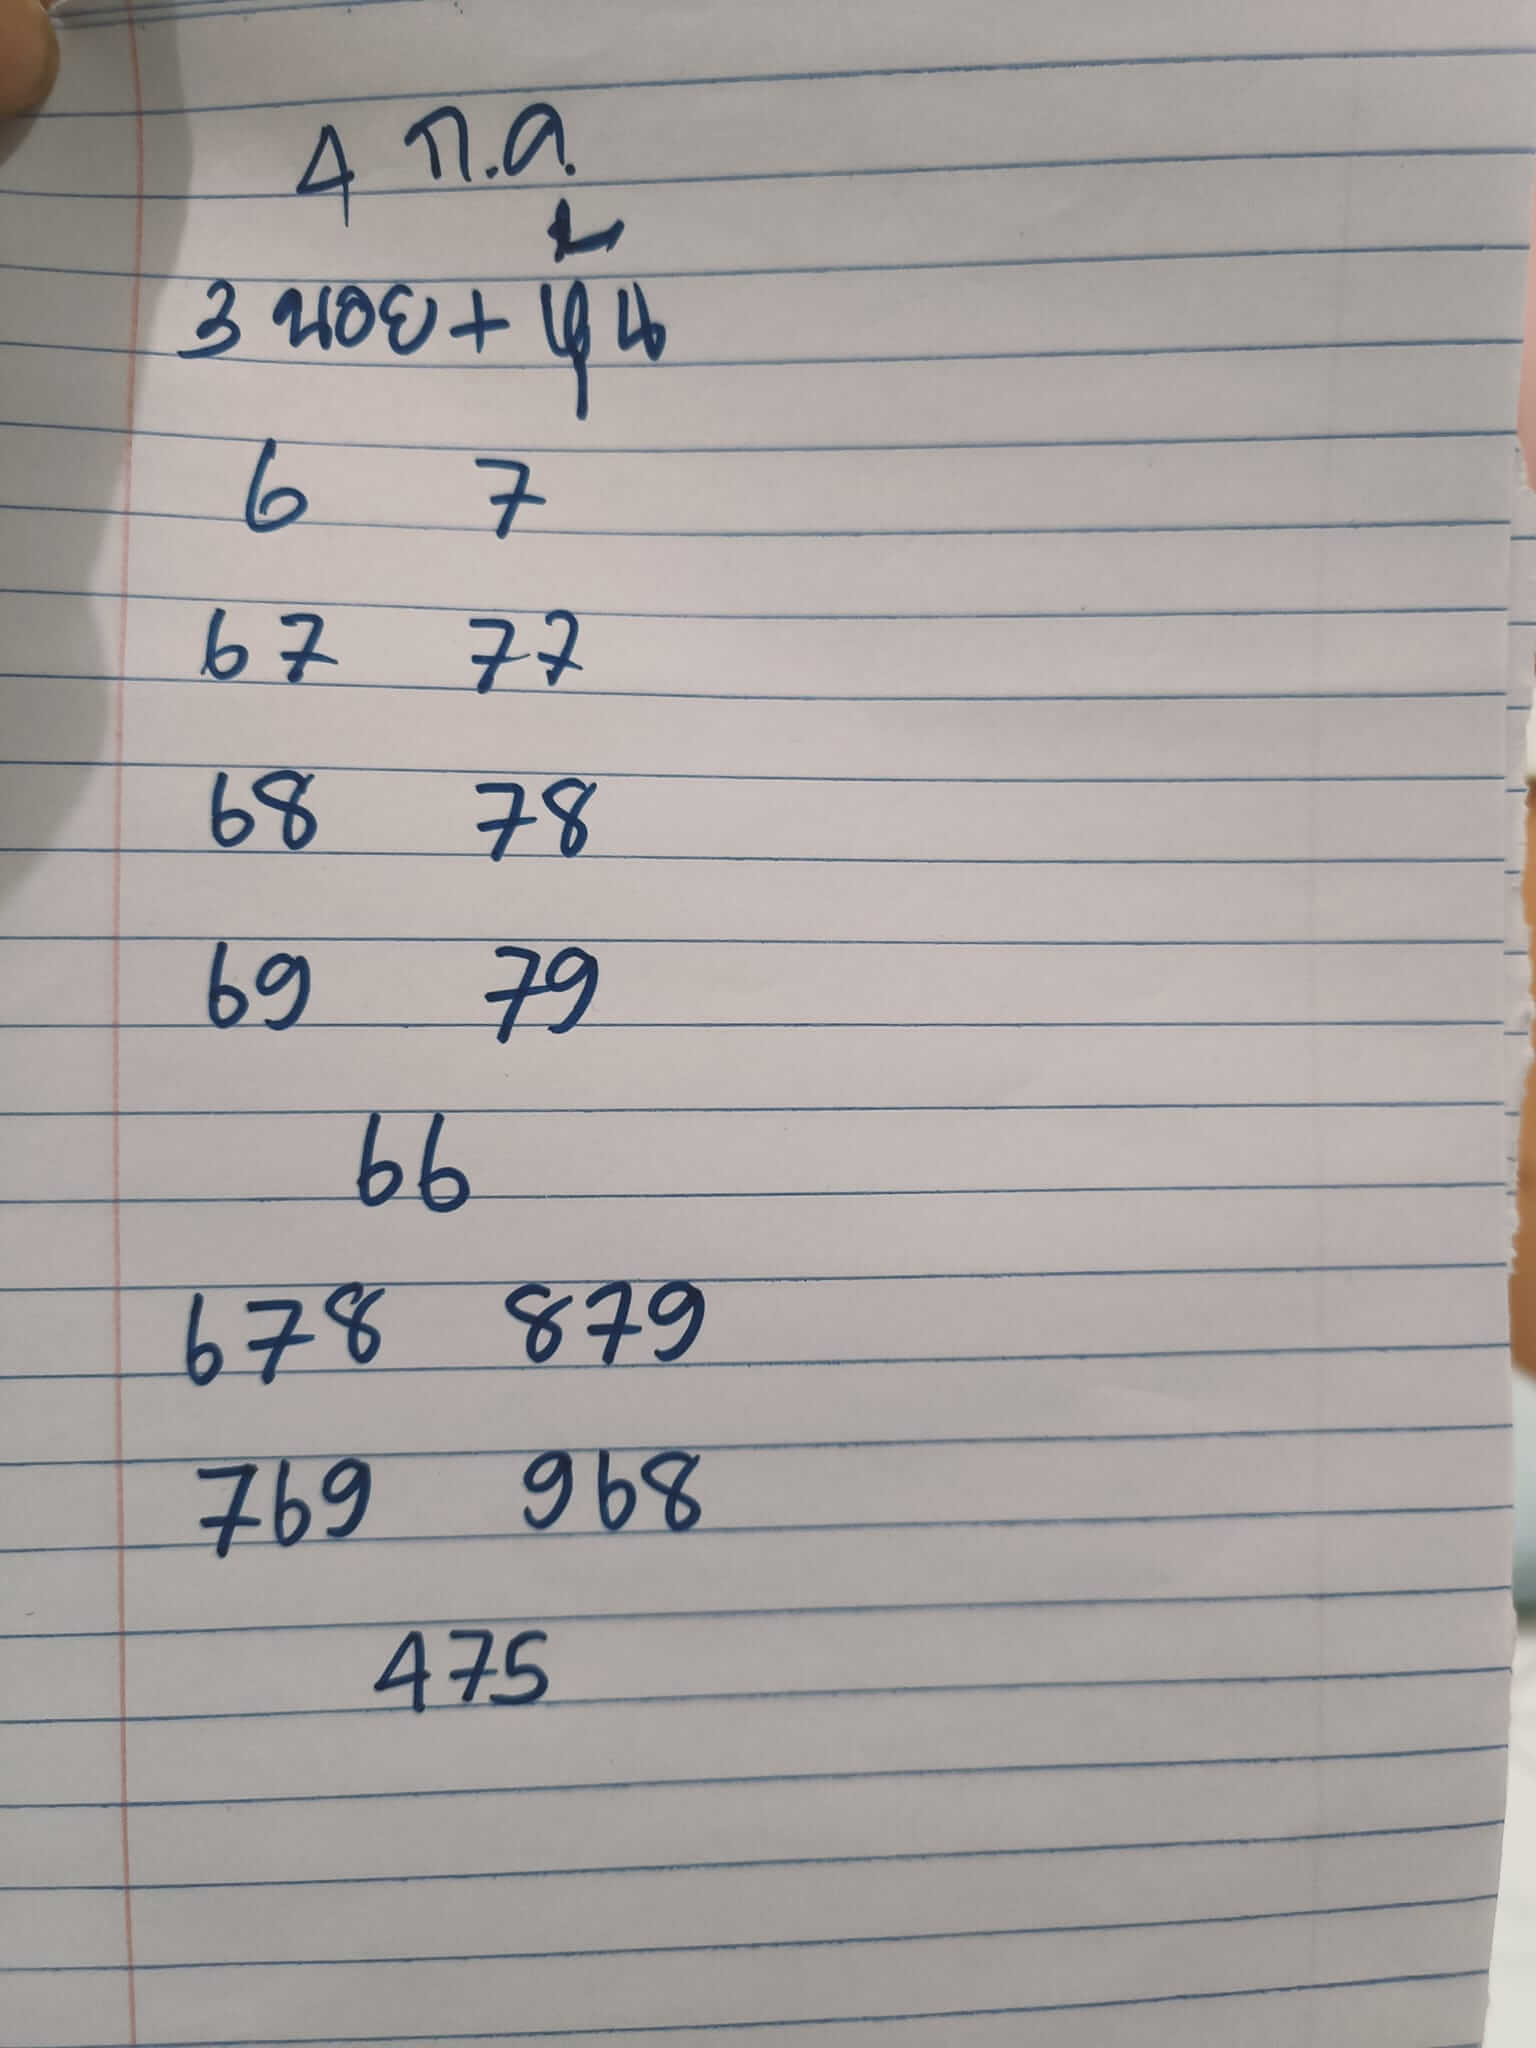 4 ก.ค.
3 นอย + หุ้น
6 7
67 77
68 78
69 79
66
678 879
769 968
475